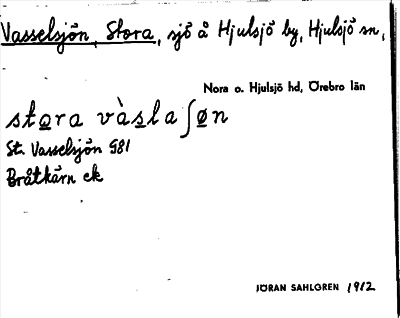 Vasselsjön, Stora, sjö å Hjulsjö by, Hjulsjö sn,
Nora o. Hjulsjö hd, Örebro län
stora vàsla∫øn
St. Vasselsjön G81
Bråtkärn ek
JÖRAN SAHLGREN 1912